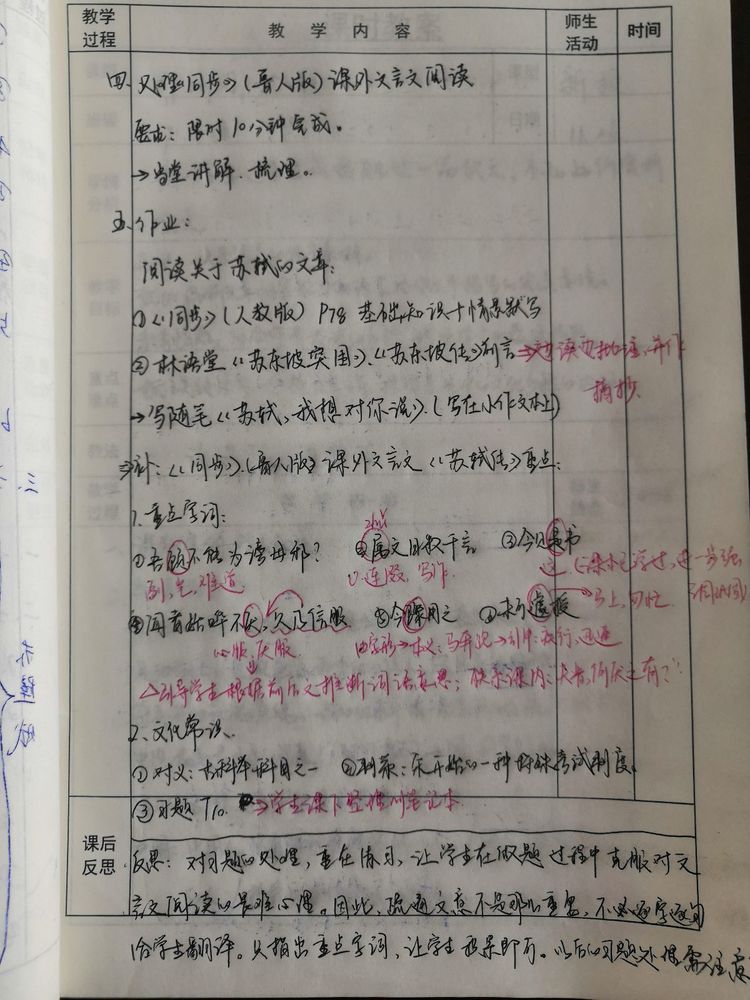 教学过程 教学内容 师生活动 时间
四、处理《同步》(晋人版)课外文言文阅读
要求：限时10分钟完成。
→当堂讲解、梳理。
五、作业：
阅读关于苏轼的文章：
①《同步》(人教版) P78 基础知识+情景默写
②林语堂《苏东坡突围》、《苏东坡传》前言⇒边读边批注，并作
摘抄
→写随笔《苏轼，我想对你说》.(写在小作文本上)
⇒补：《同步》(晋人版)课外文言文《苏轼传》重点：
1、重点字词：
zhǔ
①吾顾不能为滂母邪？ ②属文日数千言 ③今日
副，岂，难道 连缀，写作
④闻者始哗不厌，久乃信服 ⑤今骤用之 ⑥未可遽授
心服，厌服
△引导学生根据前后文推断词语意思；联系课内
2、文化常识
①对义：古科举科目之一 ②制策： 开始的一种特殊考试制度。
③习题 T10. ⇒学生课下整理到笔记本
课后反思
反思：对习题的处理，重在练习，让学生在做题过程中克服对文
言文阅读的畏难心理。因此，疏通文意不是那么重要，不必逐字逐句
给学生翻译。只指出重点字词，让学生 即可。以后的习题处理需注意